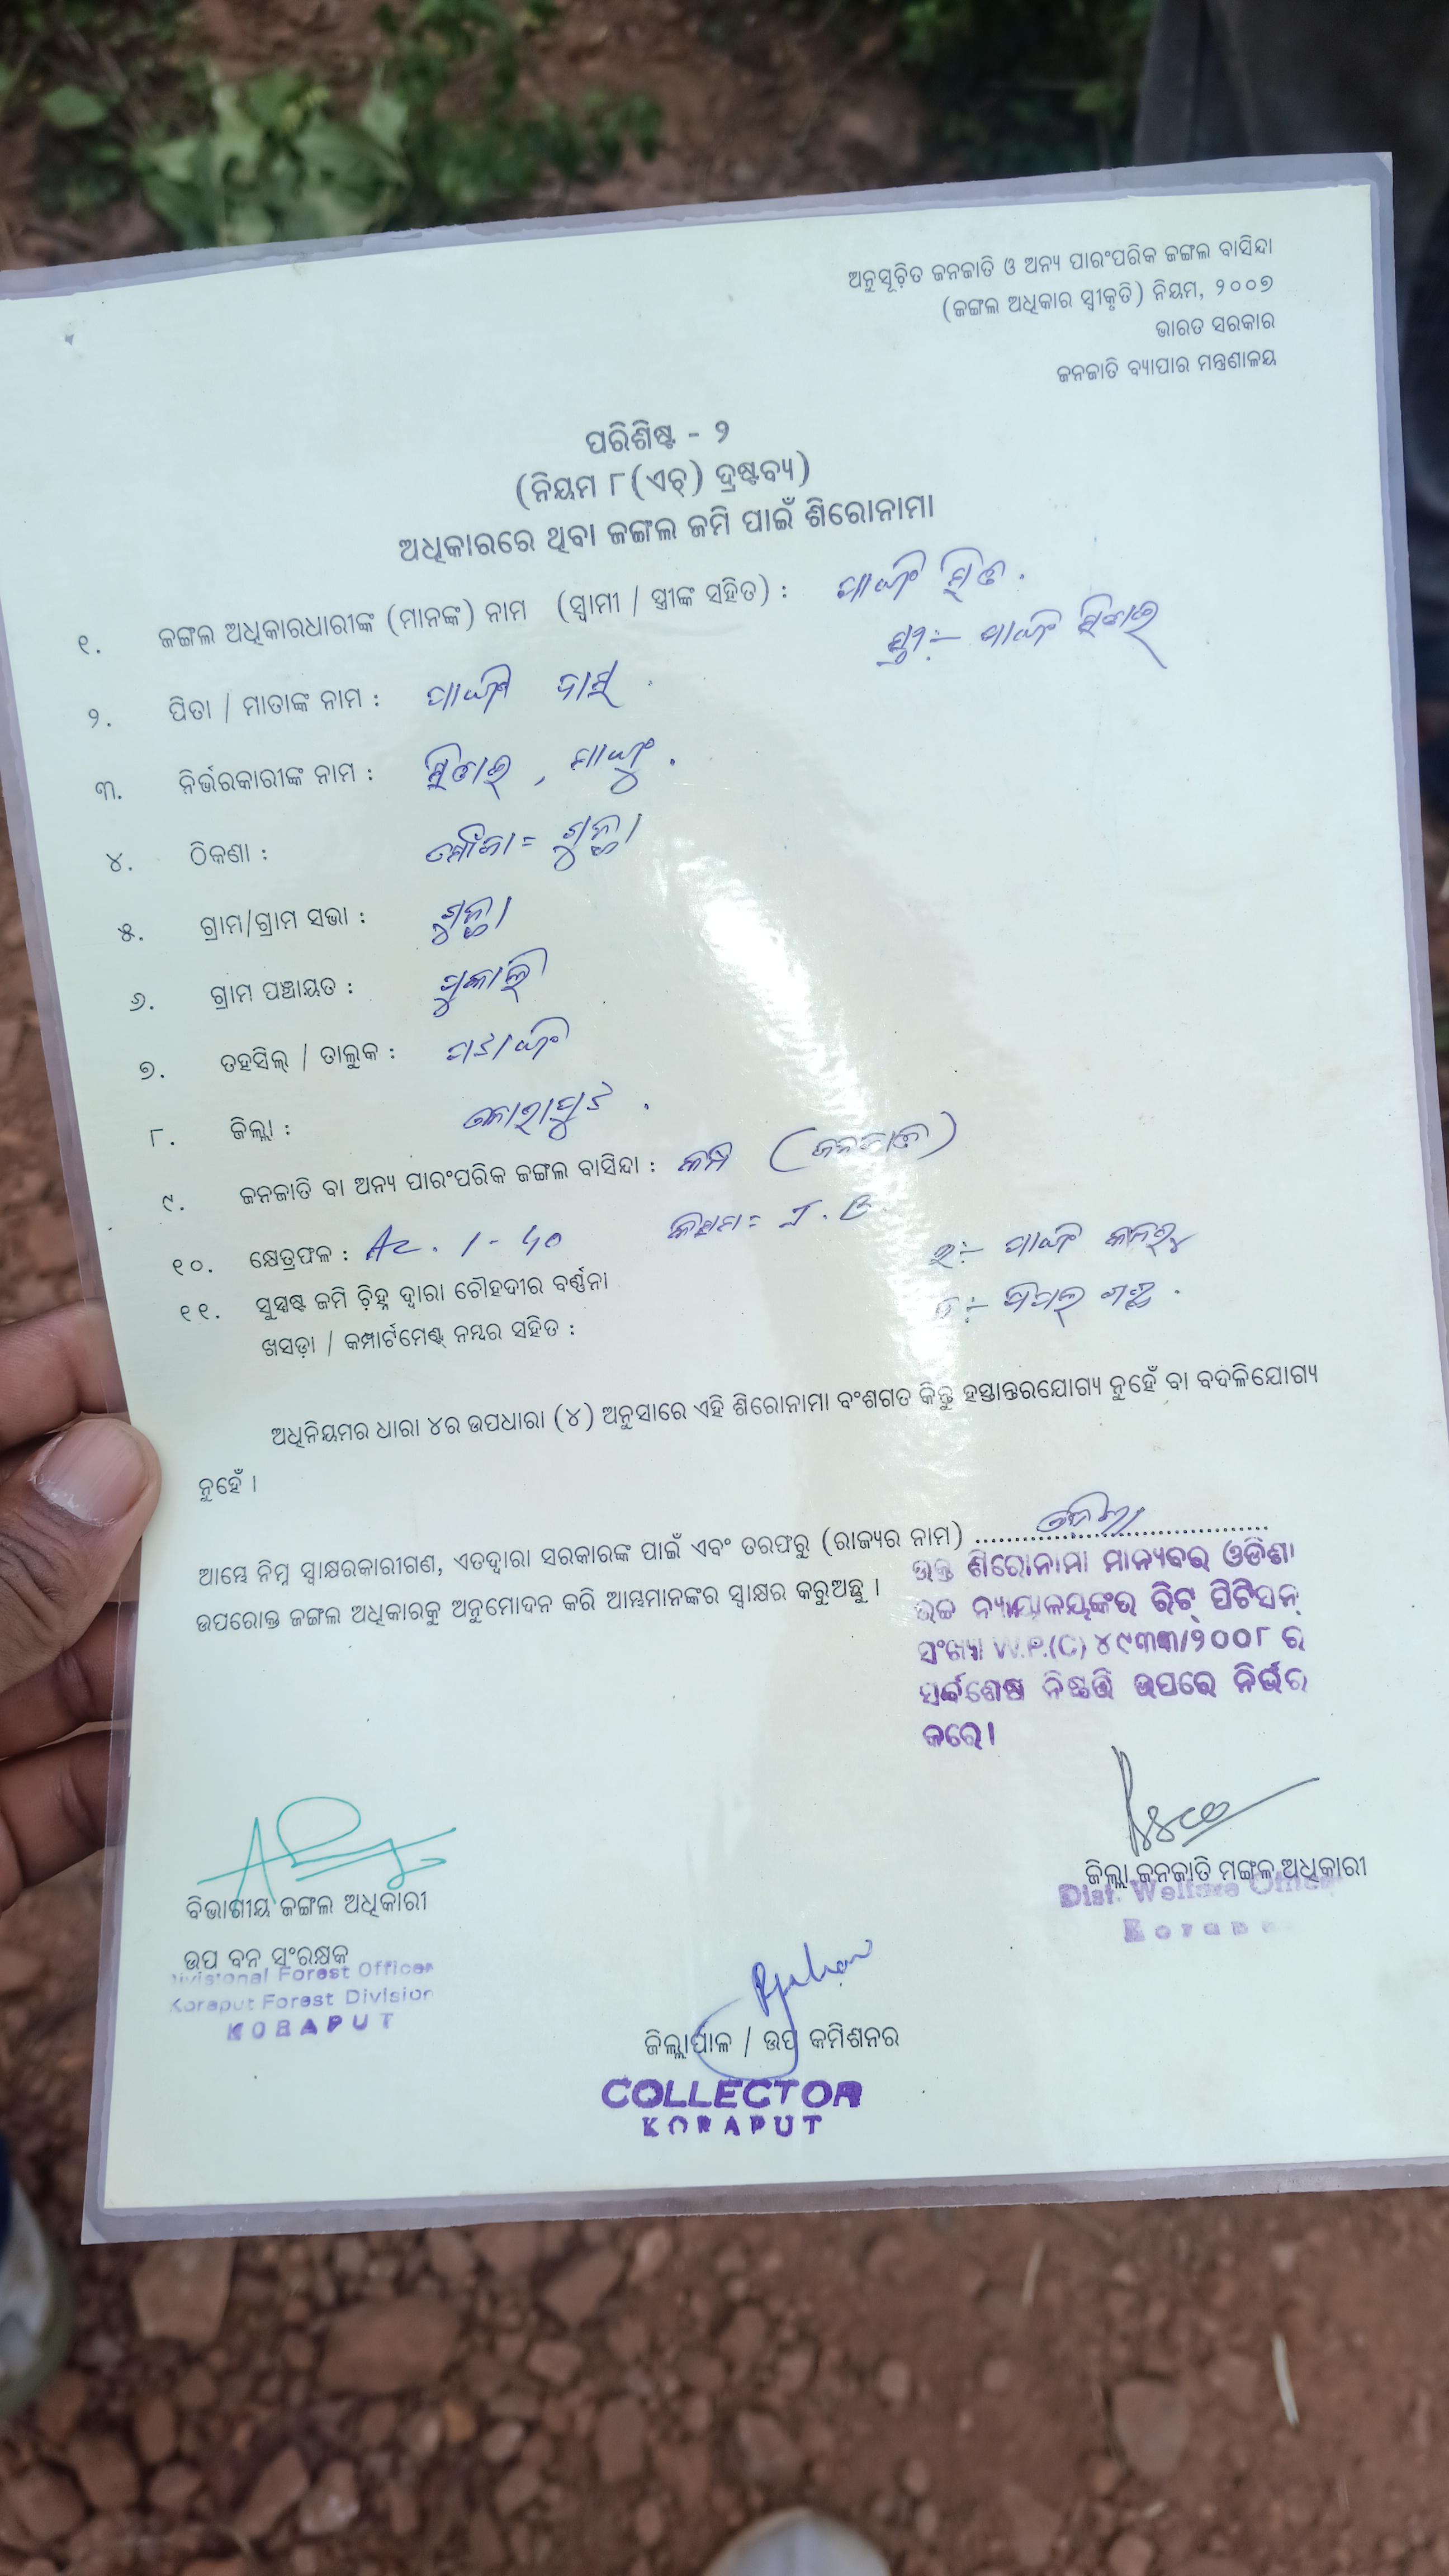 ଅନୁସୂଚିତ ଜନଜାତି ଓ ଅନ୍ୟ ପାରଂପରିକ ଜଙ୍ଗଲ ବାସିନ୍ଦା
(ଜଙ୍ଗଲ ଅଧିକାର ସ୍ୱୀକୃତି) ନିୟମ, ୨୦୦୭
ଭାରତ ସରକାର
ଜନଜାତି ବ୍ୟାପାର ମନ୍ତ୍ରଣାଳୟ
ପରିଶିଷ୍ଟ - ୨
(ନିୟମ ୮(ଏଚ୍) ଦ୍ରଷ୍ଟବ୍ୟ)
ଅଧିକାରରେ ଥିବା ଜଙ୍ଗଲ ଜମି ପାଇଁ ଶିରୋନାମା
୧. ଜଙ୍ଗଲ ଅଧିକାରଧାରୀଙ୍କ (ମାନଙ୍କ) ନାମ (ସ୍ୱାମୀ / ସ୍ତ୍ରୀଙ୍କ ସହିତ) :
୨. ପିତା / ମାତାଙ୍କ ନାମ :
୩. ନିର୍ଭରକାରୀଙ୍କ ନାମ :
୪. ଠିକଣା : ମୌଜା =
୫. ଗ୍ରାମ/ଗ୍ରାମ ସଭା :
୬. ଗ୍ରାମ ପଞ୍ଚାୟତ :
୭. ତହସିଲ୍ / ତାଲୁକ :
୮. ଜିଲ୍ଲା : କୋରାପୁଟ .
୯. ଜନଜାତି ବା ଅନ୍ୟ ପାରଂପରିକ ଜଙ୍ଗଲ ବାସିନ୍ଦା : (ଜନଜାତି)
୧୦. କ୍ଷେତ୍ରଫଳ : Ac. 1-40 କିସମ =
୧୧. ସୁସ୍ପଷ୍ଟ ଜମି ଚିହ୍ନ ଦ୍ୱାରା ଚୌହଦୀର ବର୍ଣ୍ଣନା
ଖସଡ଼ା / କମ୍ପାର୍ଟମେଣ୍ଟ୍ ନମ୍ବର ସହିତ :
ଅଧିନିୟମର ଧାରା ୪ର ଉପଧାରା (୪) ଅନୁସାରେ ଏହି ଶିରୋନାମା ବଂଶଗତ କିନ୍ତୁ ହସ୍ତାନ୍ତରଯୋଗ୍ୟ ନୁହେଁ ବା ବଦଳିଯୋଗ୍ୟ
ନୁହେଁ ।
ଆମ୍ଭେ ନିମ୍ନ ସ୍ୱାକ୍ଷରକାରୀଗଣ, ଏତଦ୍ୱାରା ସରକାରଙ୍କ ପାଇଁ ଏବଂ ତରଫରୁ (ରାଜ୍ୟର ନାମ) ....................
ଉପରୋକ୍ତ ଜଙ୍ଗଲ ଅଧିକାରକୁ ଅନୁମୋଦନ କରି ଆମ୍ଭମାନଙ୍କର ସ୍ୱାକ୍ଷର କରୁଅଛୁ ।
ଉକ୍ତ ଶିରୋନାମା ମାନ୍ୟବର ଓଡିଶା
ଉଚ୍ଚ ନ୍ୟାୟାଳୟଙ୍କର ରିଟ୍ ପିଟିସନ୍
ସଂଖ୍ୟା W.P.(C) ୪୯୩୩/୨୦୦୮ ର
ସର୍ବଶେଷ ନିଷ୍ପତ୍ତି ଉପରେ ନିର୍ଭର
କରେ।
ବିଭାଗୀୟ ଜଙ୍ଗଲ ଅଧିକାରୀ
ଉପ ବନ ସଂରକ୍ଷକ
Divisional Forest Officer
Koraput Forest Division
KORAPUT
ଜିଲ୍ଲା ଜନଜାତି ମଙ୍ଗଳ ଅଧିକାରୀ
Dist. Welfare Officer
ଜିଲ୍ଲାପାଳ / ଉପ କମିଶନର
COLLECTOR
KORAPUT